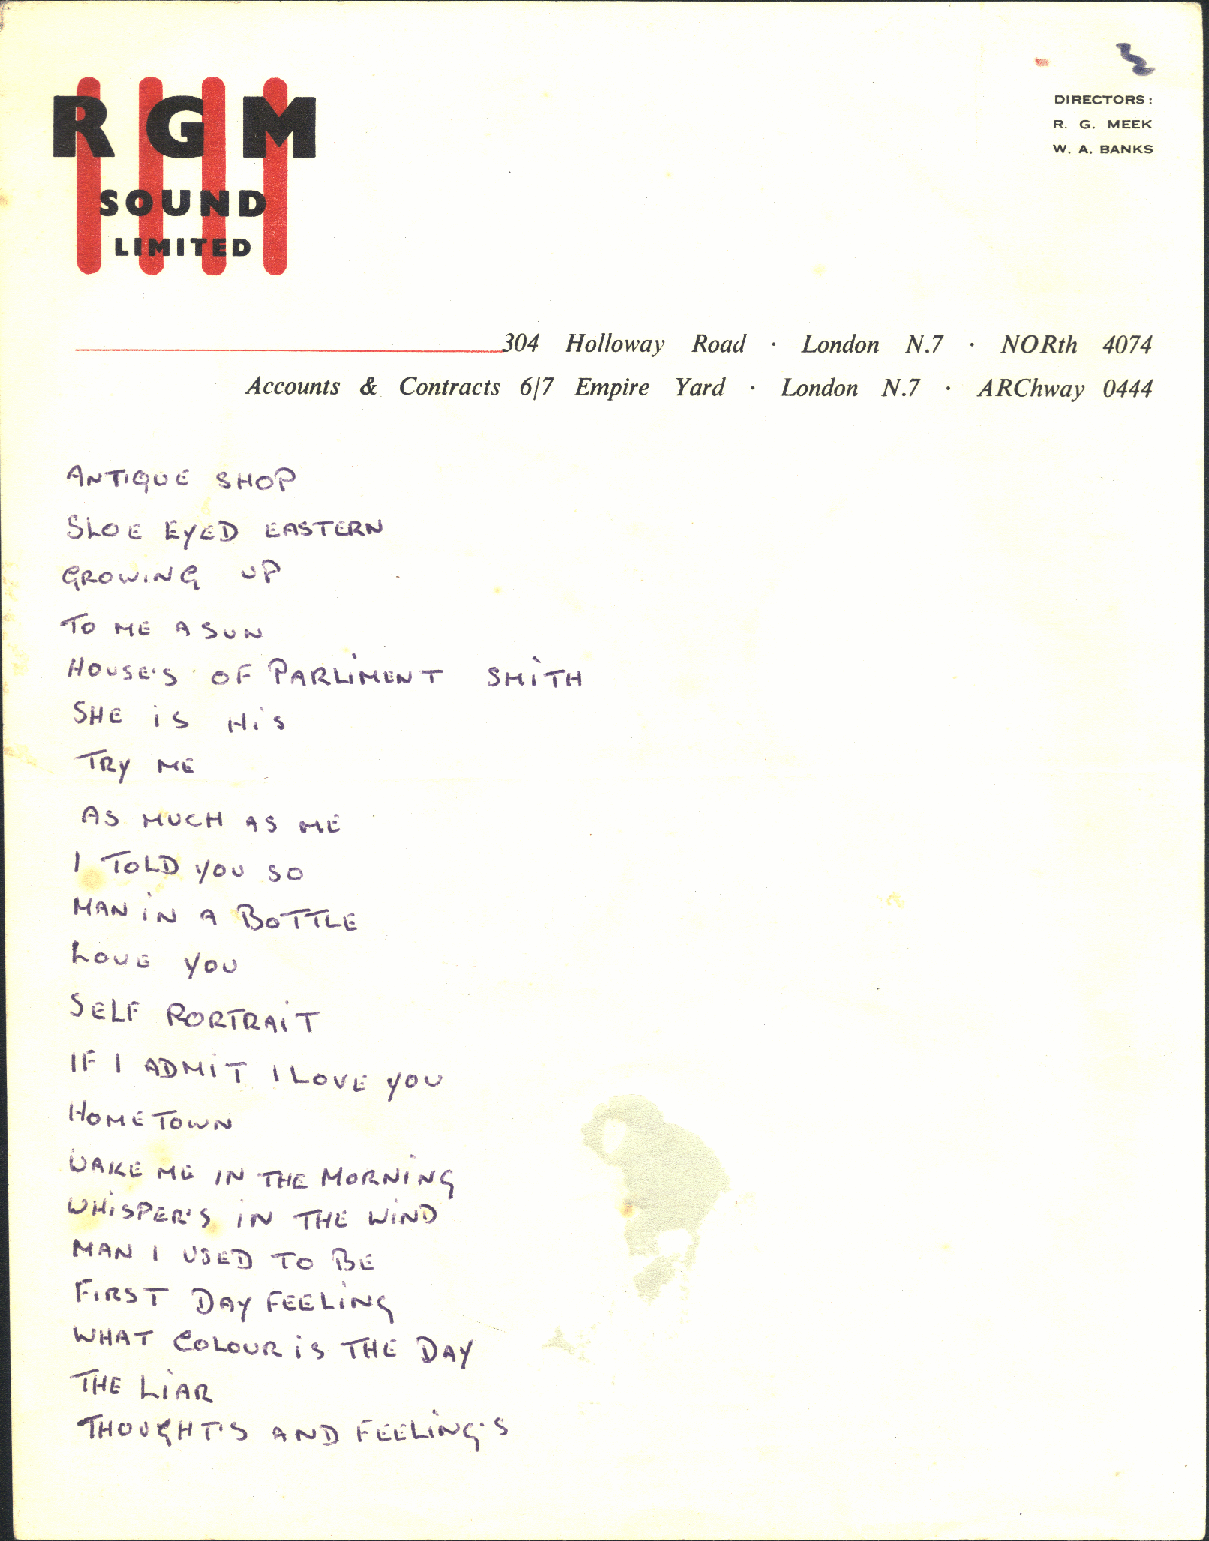 RGM
SOUND
LIMITED
DIRECTORS:
R. G. MEEK
W. A. BANKS
304 Holloway Road · London N.7 · NORth 4074
Accounts & Contracts 6/7 Empire Yard · London N.7 · ARChway 0444
ANTIQUE SHOP
SLOE EYED EASTERN
GROWING UP
TO ME A SUN
HOUSE'S OF PARLIMENT SMITH
SHE IS HIS
TRY ME
AS MUCH AS ME
I TOLD YOU SO
MAN IN A BOTTLE
LOVE YOU
SELF PORTRAIT
IF I ADMIT I LOVE YOU
HOME TOWN
WAKE ME IN THE MORNING
WHISPER'S IN THE WIND
MAN I USED TO BE
FIRST DAY FEELING
WHAT COLOUR IS THE DAY
THE LIAR
THOUGHT'S AND FEELING'S